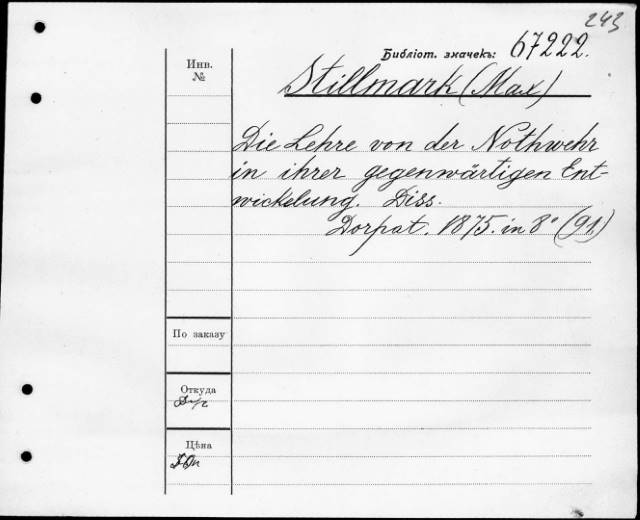 243
Библіот. значекъ: 67222.
Инв.
№
Stillmark (Max)
Die Lehre von der Nothwehr
in ihrer gegenwärtigen Ent-
wickelung. Diss.
Dorpat. 1875. in 8° (91)
По заказу
Откуда
Цѣна